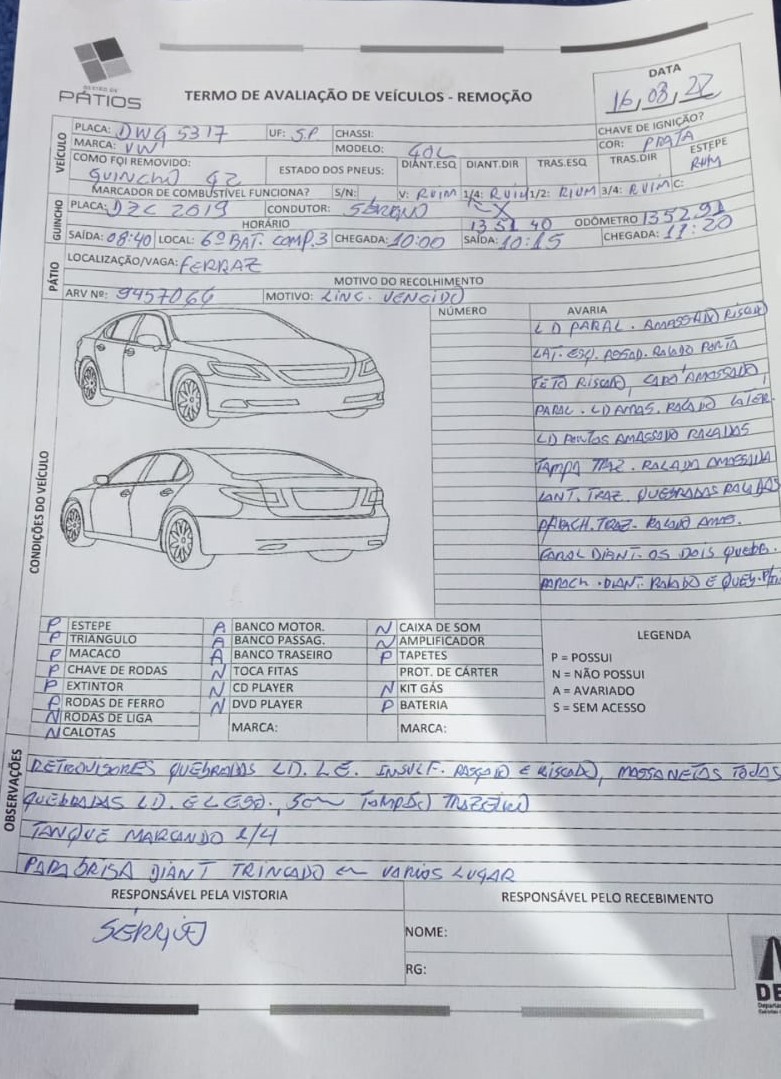 PÁTIOS
TERMO DE AVALIAÇÃO DE VEÍCULOS - REMOÇÃO
DATA
16,08,22
VEÍCULO
PLACA: DWG 5317 UF: S.P CHASSI: CHAVE DE IGNIÇÃO?
MARCA: VW MODELO: GOL COR: PRATA
COMO FOI REMOVIDO: GUINCHO ESTADO DOS PNEUS: DIANT.ESQ DIANT.DIR TRAS.ESQ TRAS.DIR ESTEPE
MARCADOR DE COMBUSTÍVEL FUNCIONA? S/N: V: RUIM 1/4: RUIM 1/2: RIUM 3/4: RUIM C: RUM
GUINCHO
PLACA: DZC 2019 CONDUTOR:
HORÁRIO 1351 40 ODÔMETRO 1352.91
SAÍDA: 08:40 LOCAL: 6º BAT. COMP.3 CHEGADA: 10:00 SAÍDA: 10:15 CHEGADA: 11:20
PÁTIO
LOCALIZAÇÃO/VAGA: FERRAZ
MOTIVO DO RECOLHIMENTO
ARV Nº: MOTIVO: LINC. VENCIDO
CONDIÇÕES DO VEÍCULO
NÚMERO AVARIA
LD PARAL. AMASSADO RISCADO
LAT. ESQ. RALADO PORTA
TETO RISCADO, CAPÔ AMASSADO,
PARAL. LD AMAS. RALADO LATER.
LD PORTAS AMASSADO RALADAS
TAMPA TRAZ. RALADA AMASSADA
LANT. TRAZ. QUEBRADAS RALADAS
PARACH. TRAZ. RALADO AMAS.
DIANT. OS DOIS QUEBR.
PARACH. DIANT. RALADO E QUEB.
P ESTEPE A BANCO MOTOR. N CAIXA DE SOM LEGENDA
P TRIANGULO A BANCO PASSAG. N AMPLIFICADOR
P MACACO A BANCO TRASEIRO P TAPETES P = POSSUI
P CHAVE DE RODAS N TOCA FITAS PROT. DE CÁRTER N = NÃO POSSUI
P EXTINTOR N CD PLAYER N KIT GÁS A = AVARIADO
A RODAS DE FERRO N DVD PLAYER P BATERIA S = SEM ACESSO
N RODAS DE LIGA MARCA: MARCA:
N CALOTAS
OBSERVAÇÕES
RETROVISORES QUEBRADAS LD. LE. INSULF. RASGADO E RISCADO, MASSANETAS TODAS
QUEBRADAS LD. E L ESQ. SEM TAMPÃO TRAZEIRO
TANQUE MARCANDO 1/4
PARABRISA DIANT TRINCADO EM VARIOS LUGAR
RESPONSÁVEL PELA VISTORIA RESPONSÁVEL PELO RECEBIMENTO
SÉRGIO
NOME:
RG:
DE